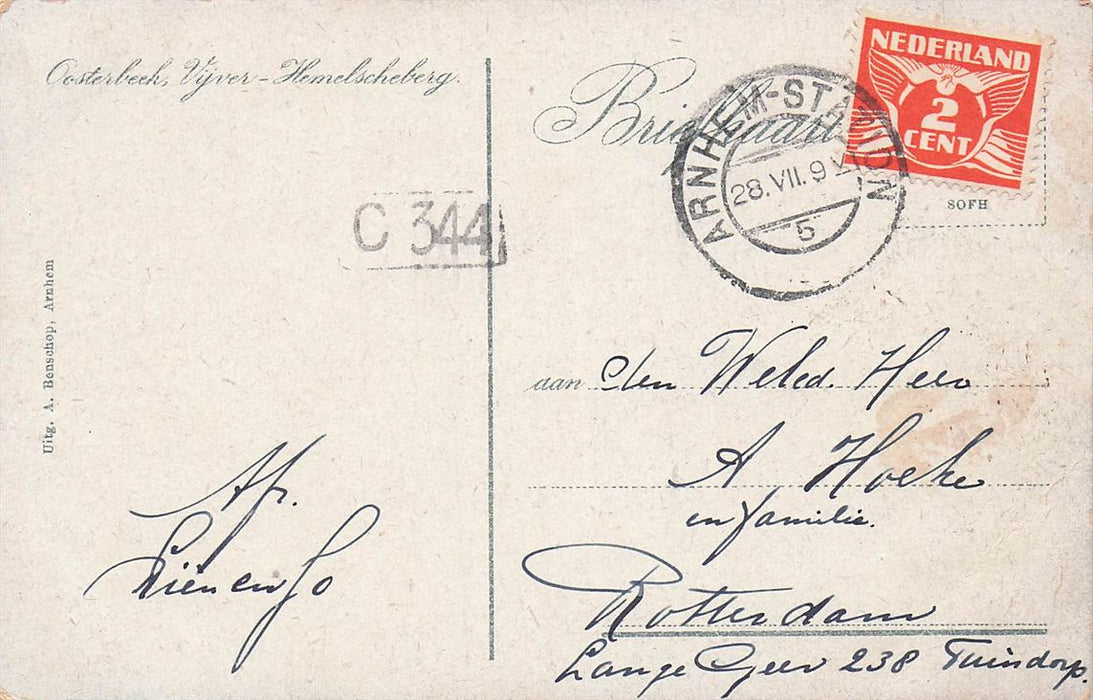 Oosterbeek, Vijver - Hemelscheberg.
Briefkaart
NEDERLAND
2
CENT
ARNHEM-STATION
28.VII.9
5
SOFH
C 344
Uitg. A. Benschop, Arnhem
aan den Weled. Heer
A Hoeke
en familie.
Rotterdam
Lange Geer 238 Tuindorp.
Af.
Lien en Jo